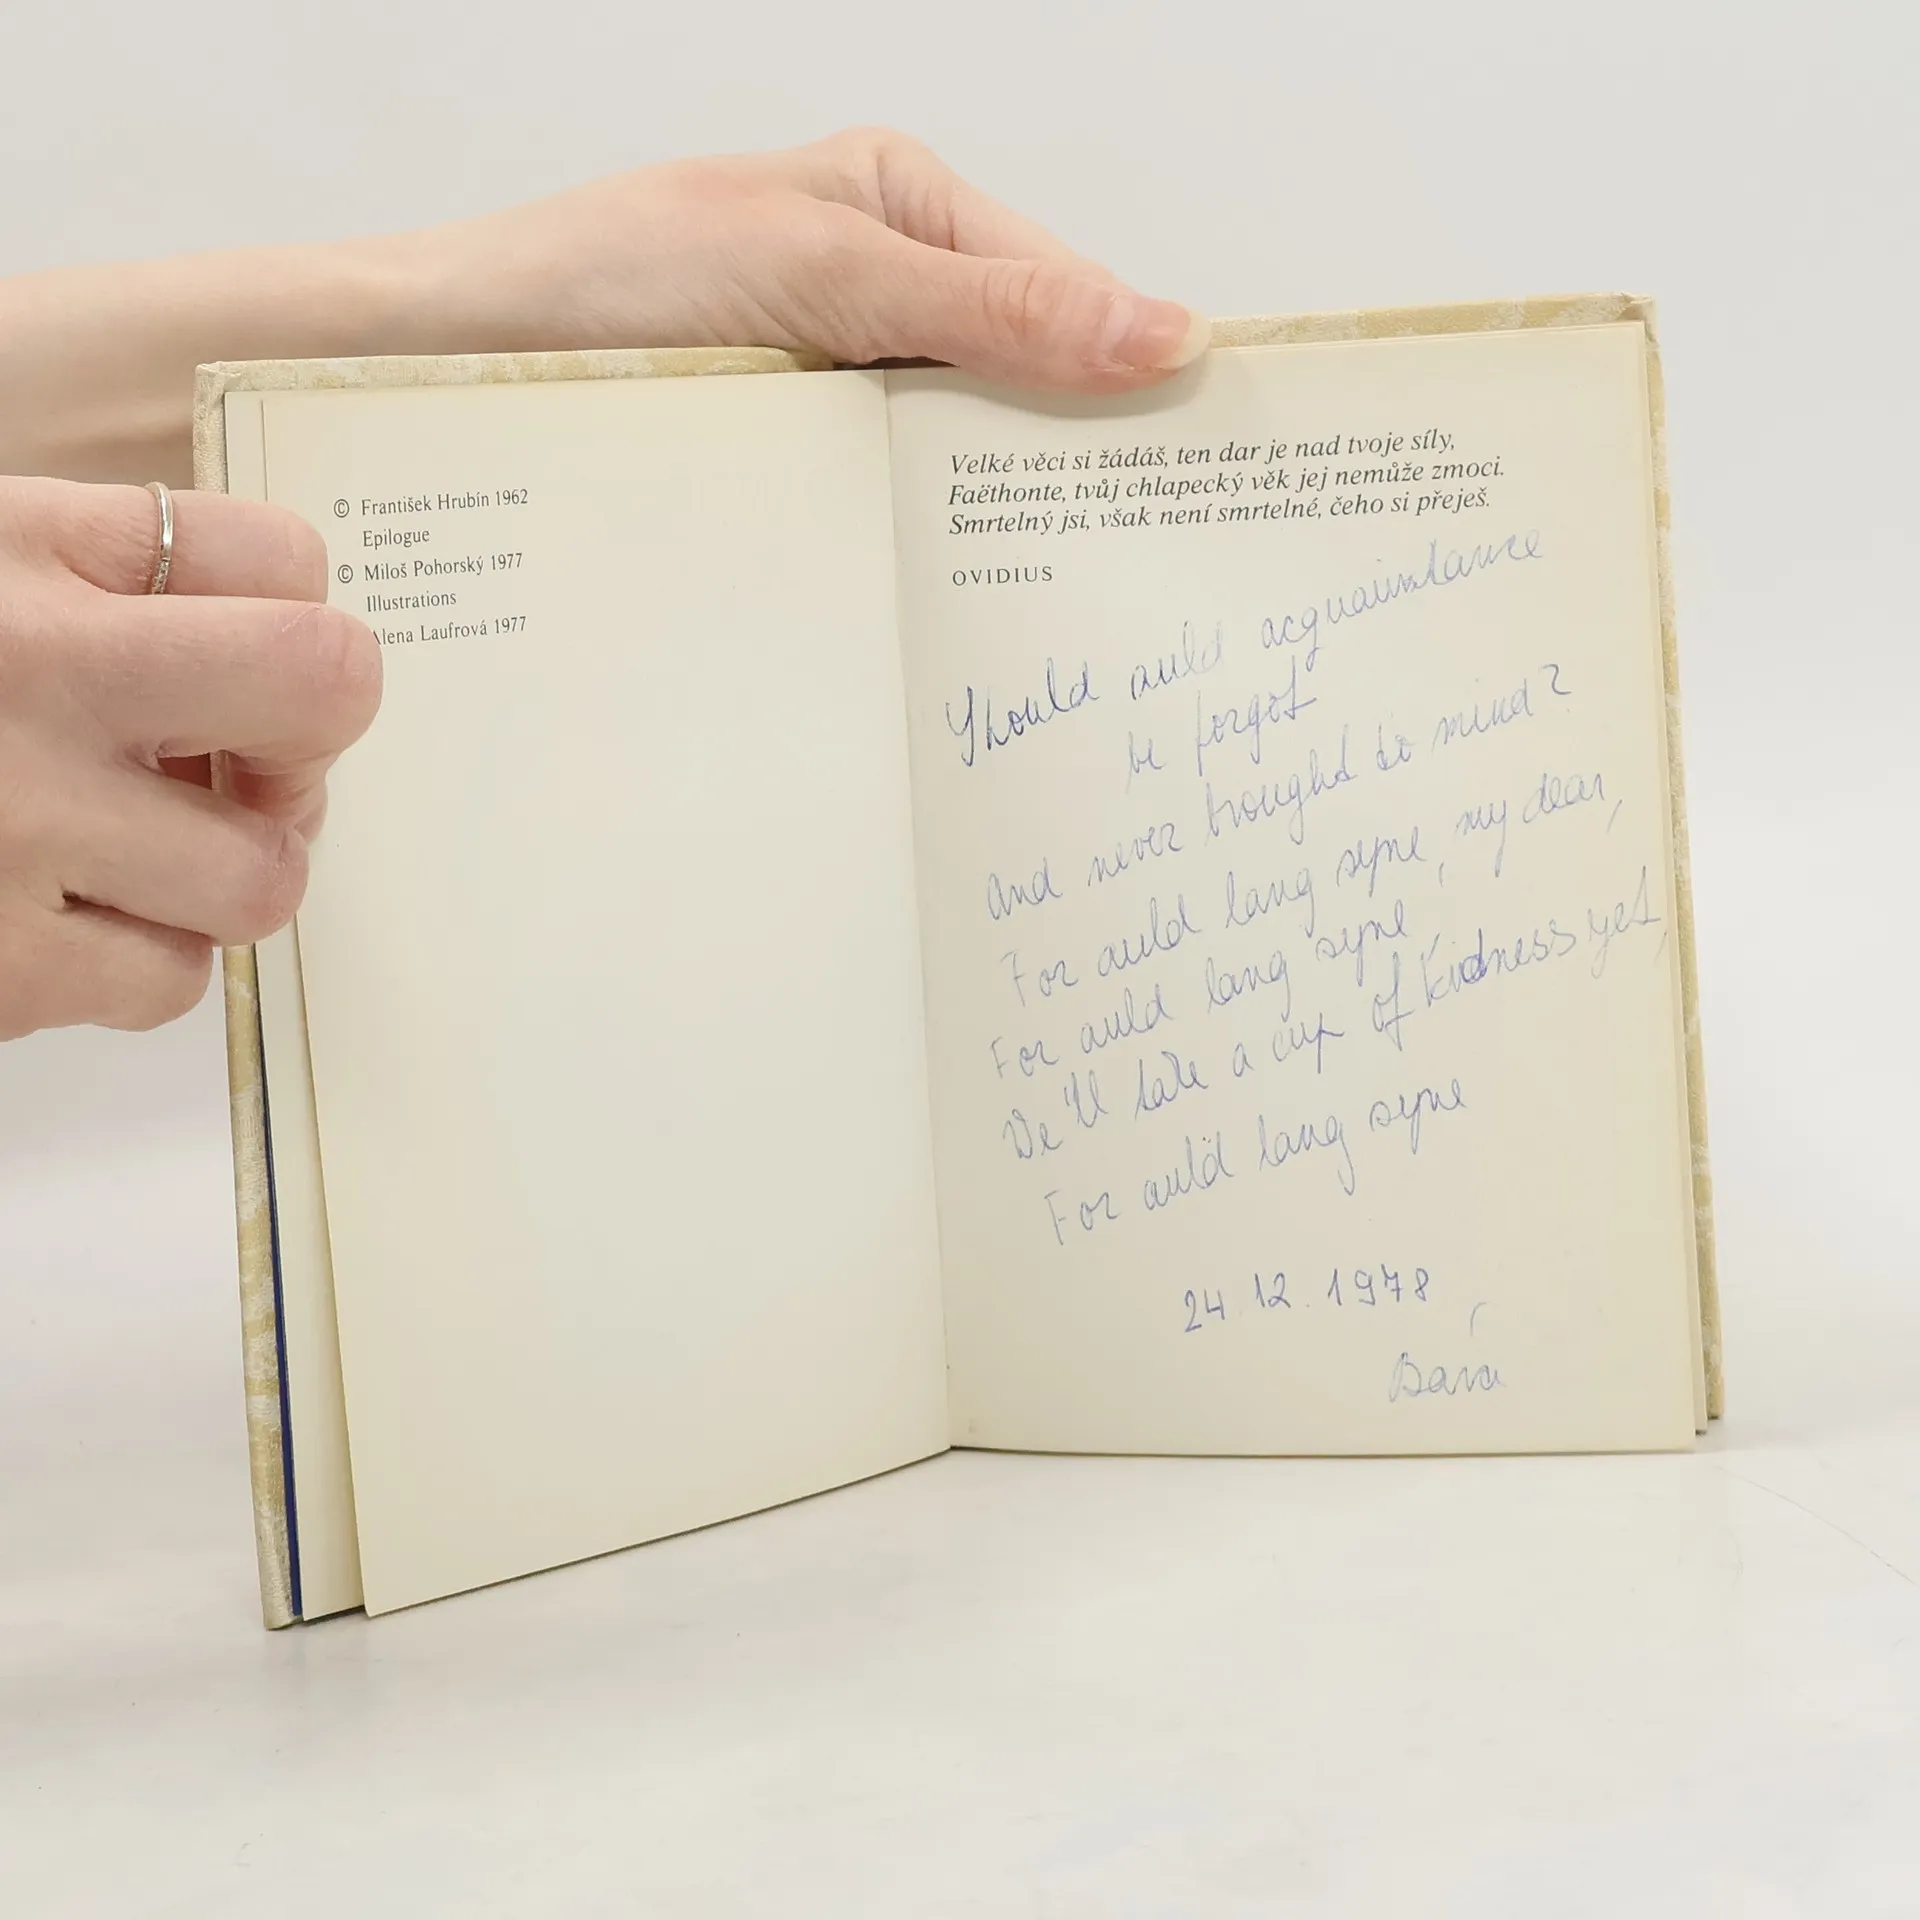 © František Hrubín 1962
Epilogue
© Miloš Pohorský 1977
Illustrations
Alena Laufrová 1977
Velké věci si žádáš, ten dar je nad tvoje síly,
Faëthonte, tvůj chlapecký věk jej nemůže zmoci.
Smrtelný jsi, však není smrtelné, čeho si přeješ.
OVIDIUS
Should auld acquaintance
be forgot
And never brought to mind?
For auld lang syne, my dear,
For auld lang syne,
We'll take a cup of kidness yet,
For auld lang syne
24. 12. 1978
Bára